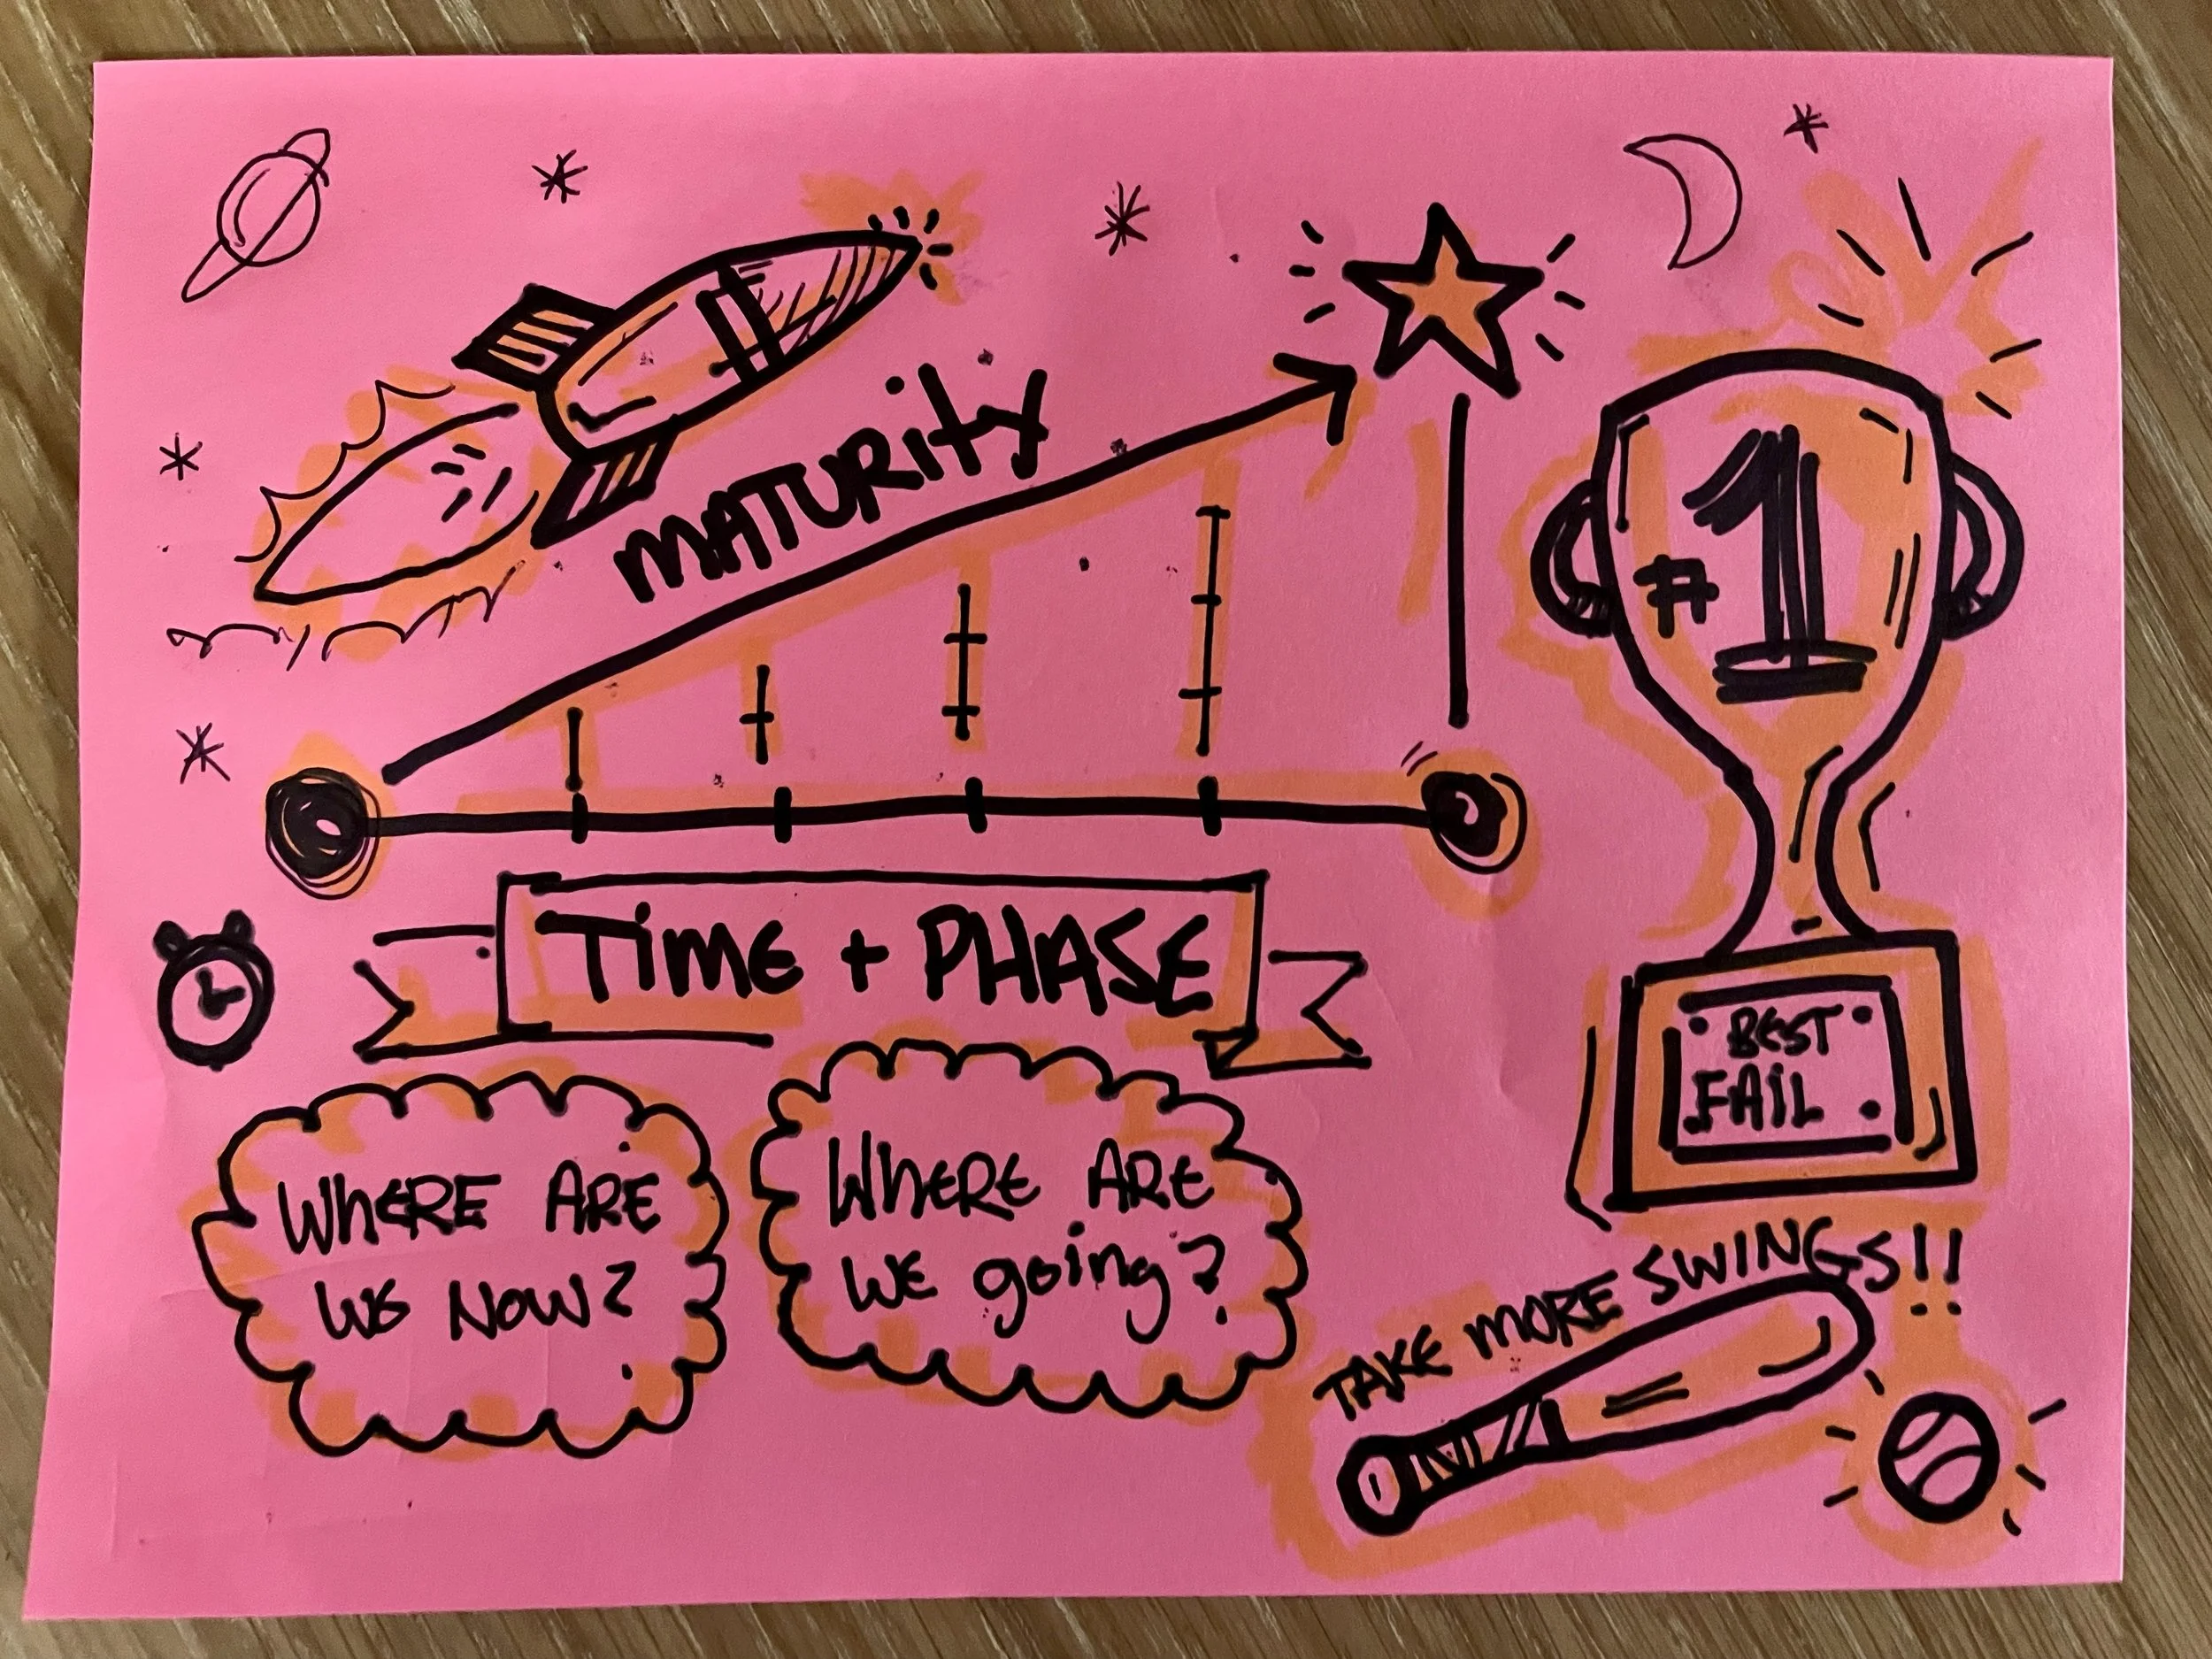 MATURITY
#1
TIME + PHASE
BEST
FAIL
WHERE ARE
WE NOW?
WHERE ARE
WE going?
TAKE MORE SWINGS!!